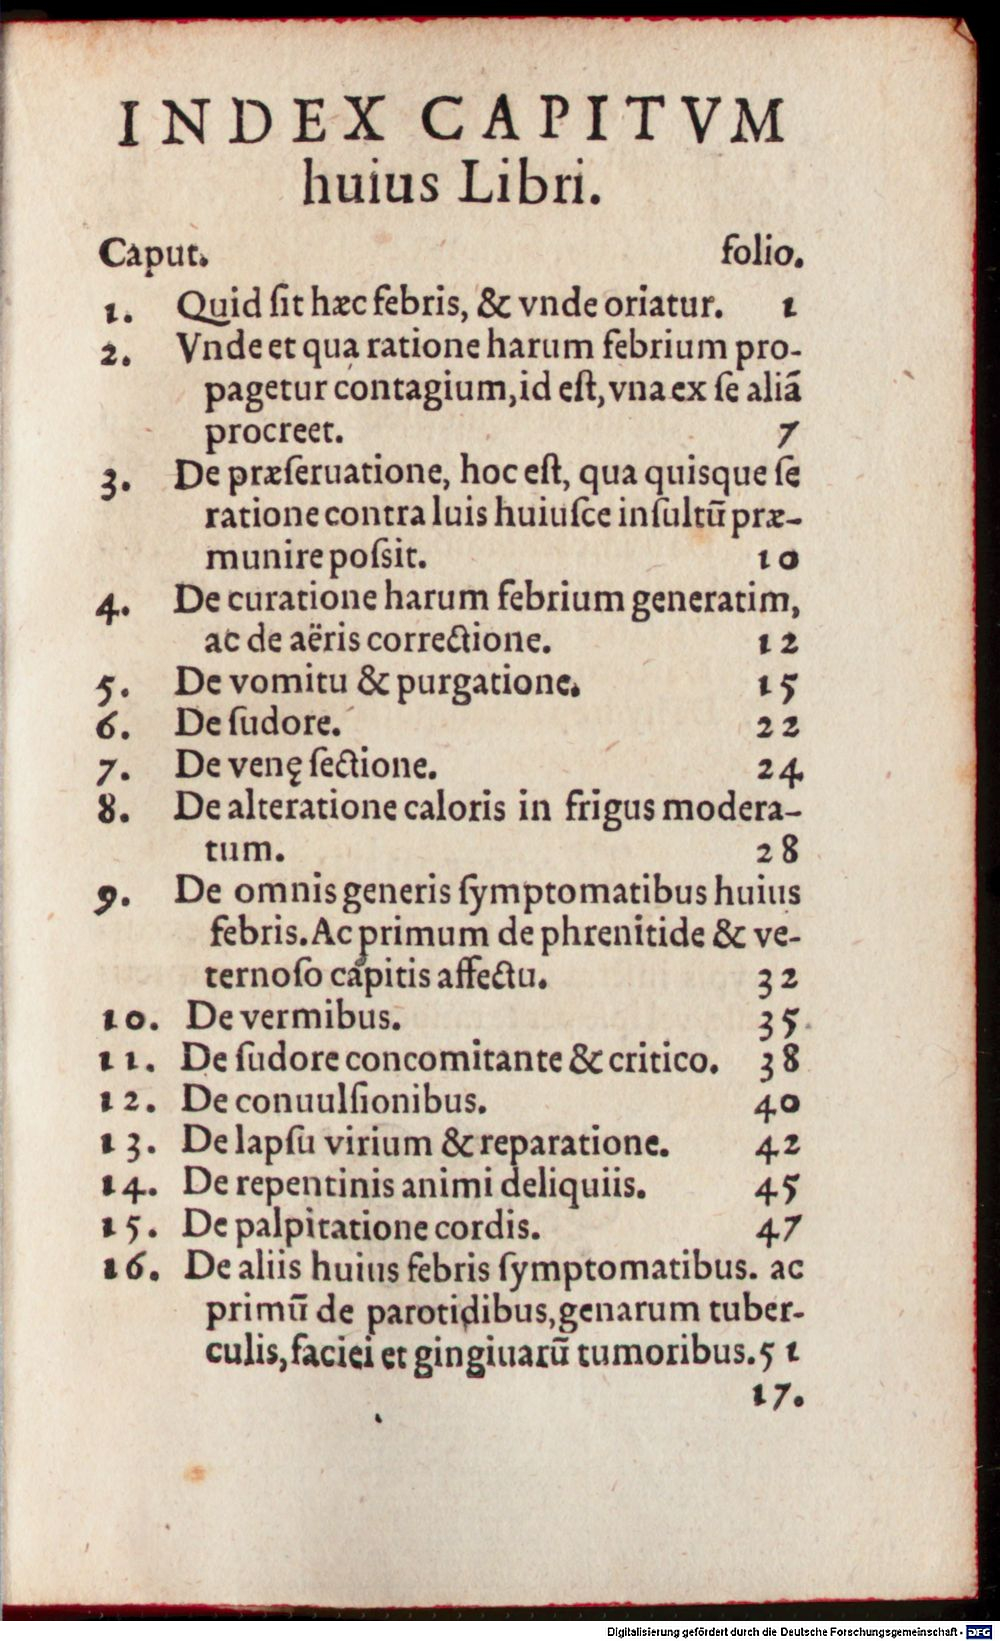 INDEX CAPITVM
huius Libri.
Caput. folio.
1. Quid ſit hæc febris, & vnde oriatur. 1
2. Vnde et qua ratione harum febrium pro-
pagetur contagium, id eſt, vna ex ſe aliā
procreet. 7
3. De præſeruatione, hoc eſt, qua quisque ſe
ratione contra luis huiuſce inſultū præ-
munire poſsit. 10
4. De curatione harum febrium generatim,
ac de aëris correctione. 12
5. De vomitu & purgatione. 15
6. De ſudore. 22
7. De venę ſectione. 24
8. De alteratione caloris in frigus modera-
tum. 28
9. De omnis generis ſymptomatibus huius
febris. Ac primum de phrenitide & ve-
ternoſo capitis affectu. 32
10. De vermibus. 35
11. De ſudore concomitante & critico. 38
12. De conuulſionibus. 40
13. De lapſu virium & reparatione. 42
14. De repentinis animi deliquiis. 45
15. De palpitatione cordis. 47
16. De aliis huius febris ſymptomatibus. ac
primū de parotidibus, genarum tuber-
culis, faciei et gingiuarū tumoribus. 51
17.
Digitalisierung gefördert durch die Deutsche Forschungsgemeinschaft - DFG